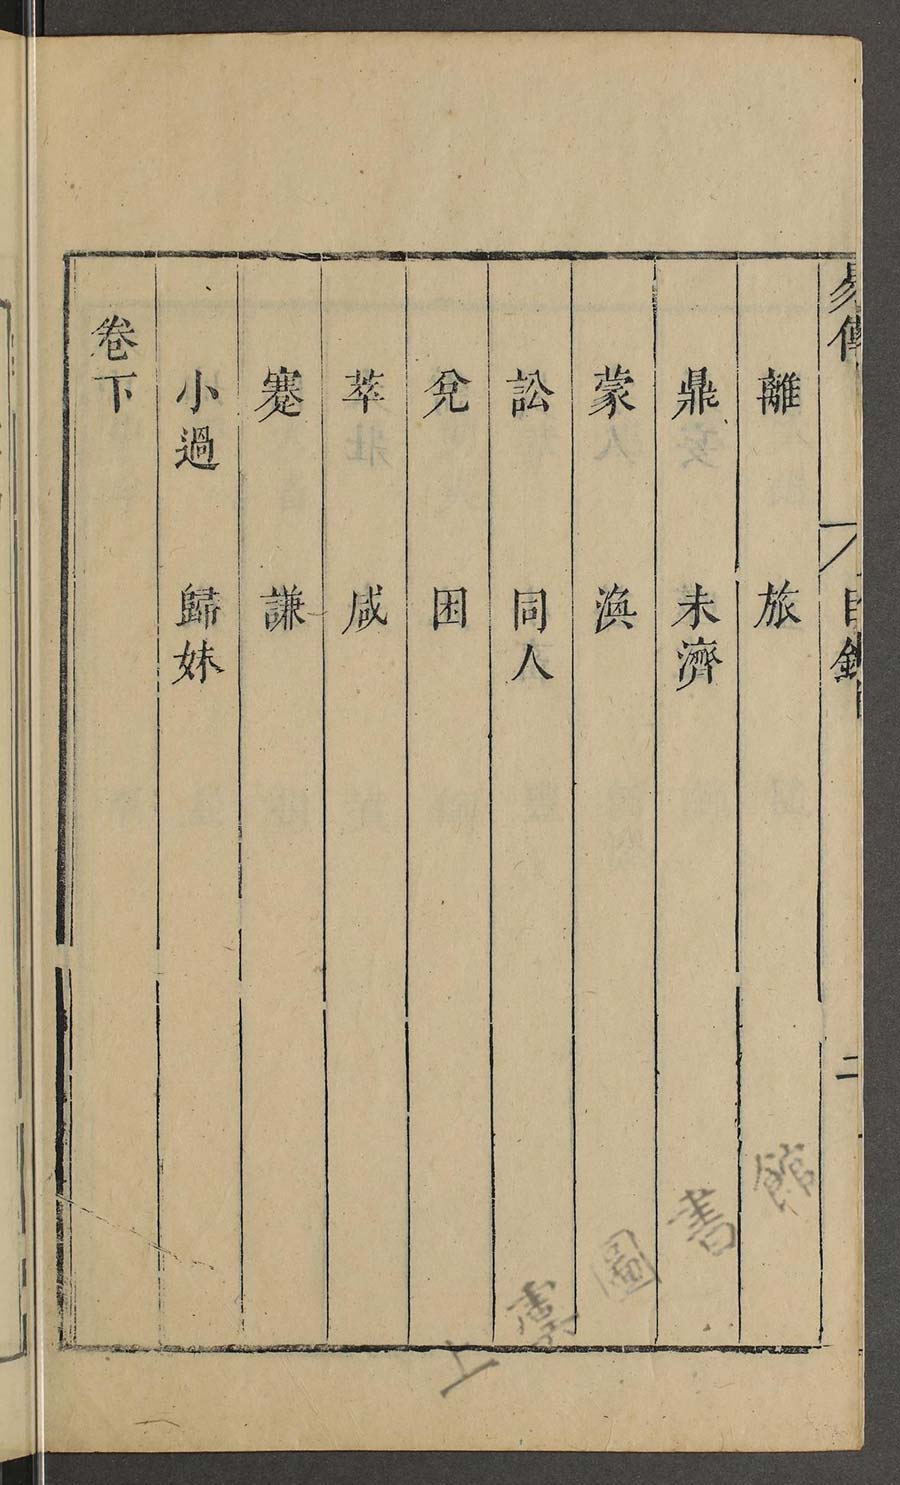 易傳 目錄 二
離 旅
鼎 未濟
蒙 渙
訟 同人
兌 困
萃 咸
蹇 謙
小過 歸妹
卷下
上虞圖書館